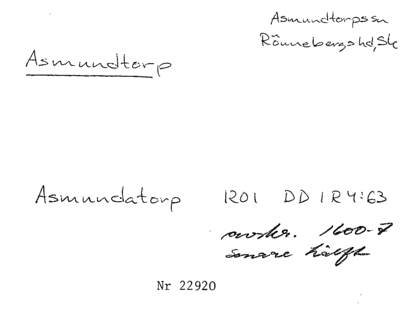 Asmundtorpssn
Rönnebergshd, Sk
Asmundtorp
Asmundatorp 1201 DD 1 R 4:63
avskr. 1600-t
senare hälft
Nr 22920